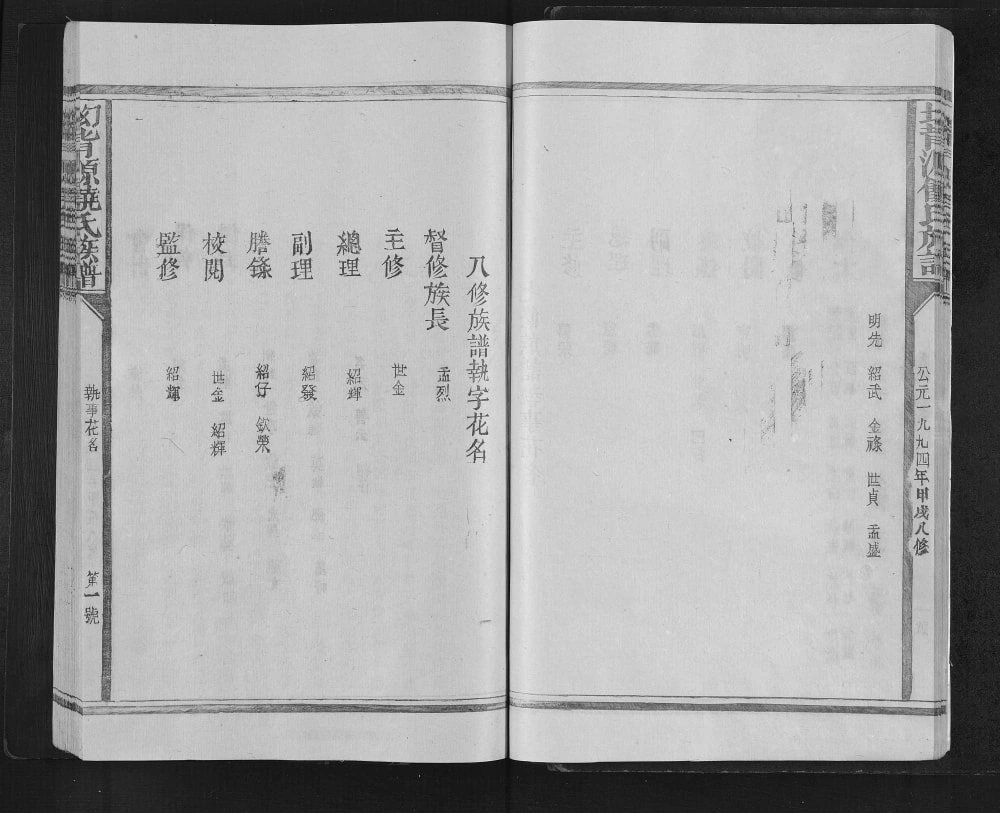 公元一九九四年甲戌八修
明先 紹武 金祿 世貞 孟盛
八修族譜執字花名
督修族長 孟烈
主修 世金
總理 紹輝
副理 紹發
謄錄 紹仔 欽榮
校閱 世金 紹輝
監修 紹輝
源饒氏族譜
執事花名
第一號